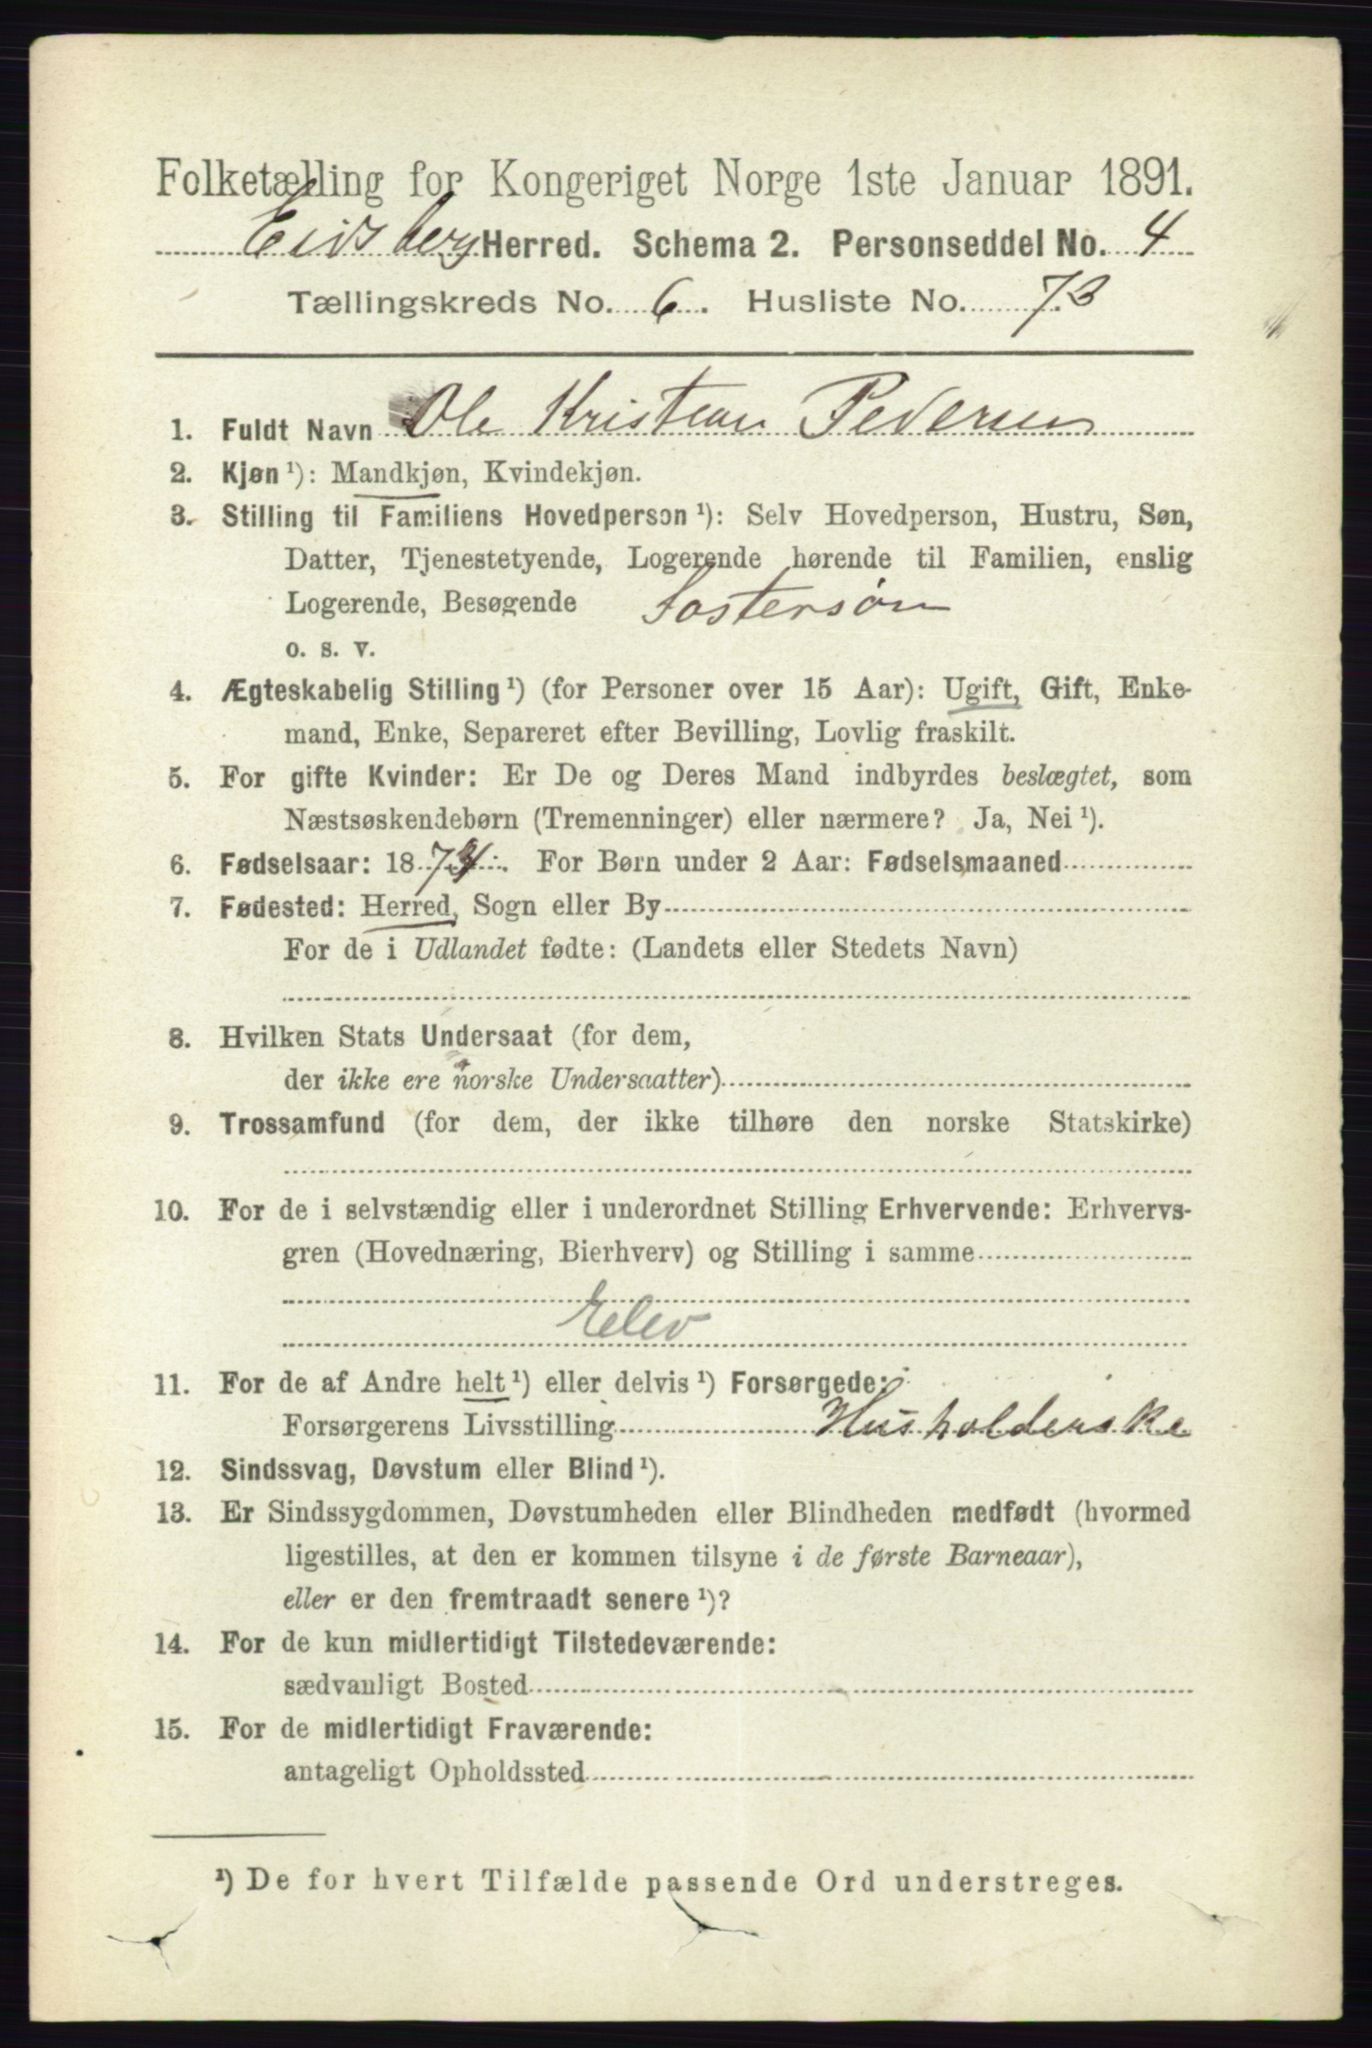 Folketælling for Kongeriget Norge 1ste Januar 1891.
Eidsberg Herred. Schema 2. Personseddel No. 4
Tællingskreds No. 6. Husliste No. 73
1. Fuldt Navn Ole Kristian Pedersen
2. Kjøn ¹): Mandkjøn, Kvindekjøn.
3. Stilling til Familiens Hovedperson ¹): Selv Hovedperson, Hustru, Søn,
Datter, Tjenestetyende, Logerende hørende til Familien, enslig
Logerende, Besøgende Fostersøn
o. s. v.
4. Ægteskabelig Stilling ¹) (for Personer over 15 Aar): Ugift, Gift, Enke-
mand, Enke, Separeret efter Bevilling, Lovlig fraskilt.
5. For gifte Kvinder: Er De og Deres Mand indbyrdes beslægtet, som
Næstsøskendebørn (Tremenninger) eller nærmere? Ja, Nei ¹).
6. Fødselsaar: 18 7 . For Børn under 2 Aar: Fødselsmaaned
7. Fødested: Herred, Sogn eller By
For de i Udlandet fødte: (Landets eller Stedets Navn)
8. Hvilken Stats Undersaat (for dem,
der ikke ere norske Undersaatter)
9. Trossamfund (for dem, der ikke tilhøre den norske Statskirke)
10. For de i selvstændig eller i underordnet Stilling Erhvervende: Erhvervs-
gren (Hovednæring, Bierhverv) og Stilling i samme
Elev
11. For de af Andre helt ¹) eller delvis ¹) Forsørgede:
Forsørgerens Livsstilling Husholderske
12. Sindssvag, Døvstum eller Blind ¹).
13. Er Sindssygdommen, Døvstumheden eller Blindheden medfødt (hvormed
ligestilles, at den er kommen tilsyne i de første Barneaar),
eller er den fremtraadt senere ¹)?
14. For de kun midlertidigt Tilstedeværende:
sædvanligt Bosted
15. For de midlertidigt Fraværende:
antageligt Opholdssted
¹) De for hvert Tilfælde passende Ord understreges.